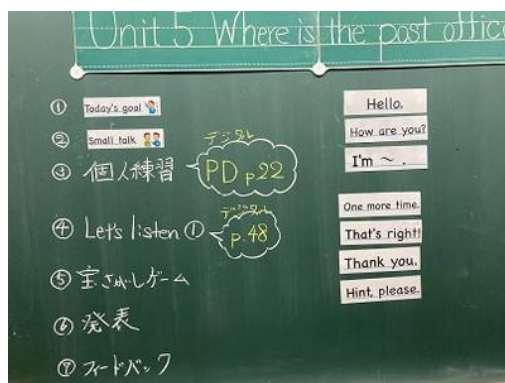 Unit 5 Where is the post office
① Today's goal
② Small talk
③ 個人練習
デジタル
PD p.22
④ Let's listen ①
デジタル
p.48
⑤ 宝さがしゲーム
⑥ 発表
⑦ フィードバック
Hello.
How are you?
I'm ～ .
One more time.
That's right!
Thank you.
Hint, please.